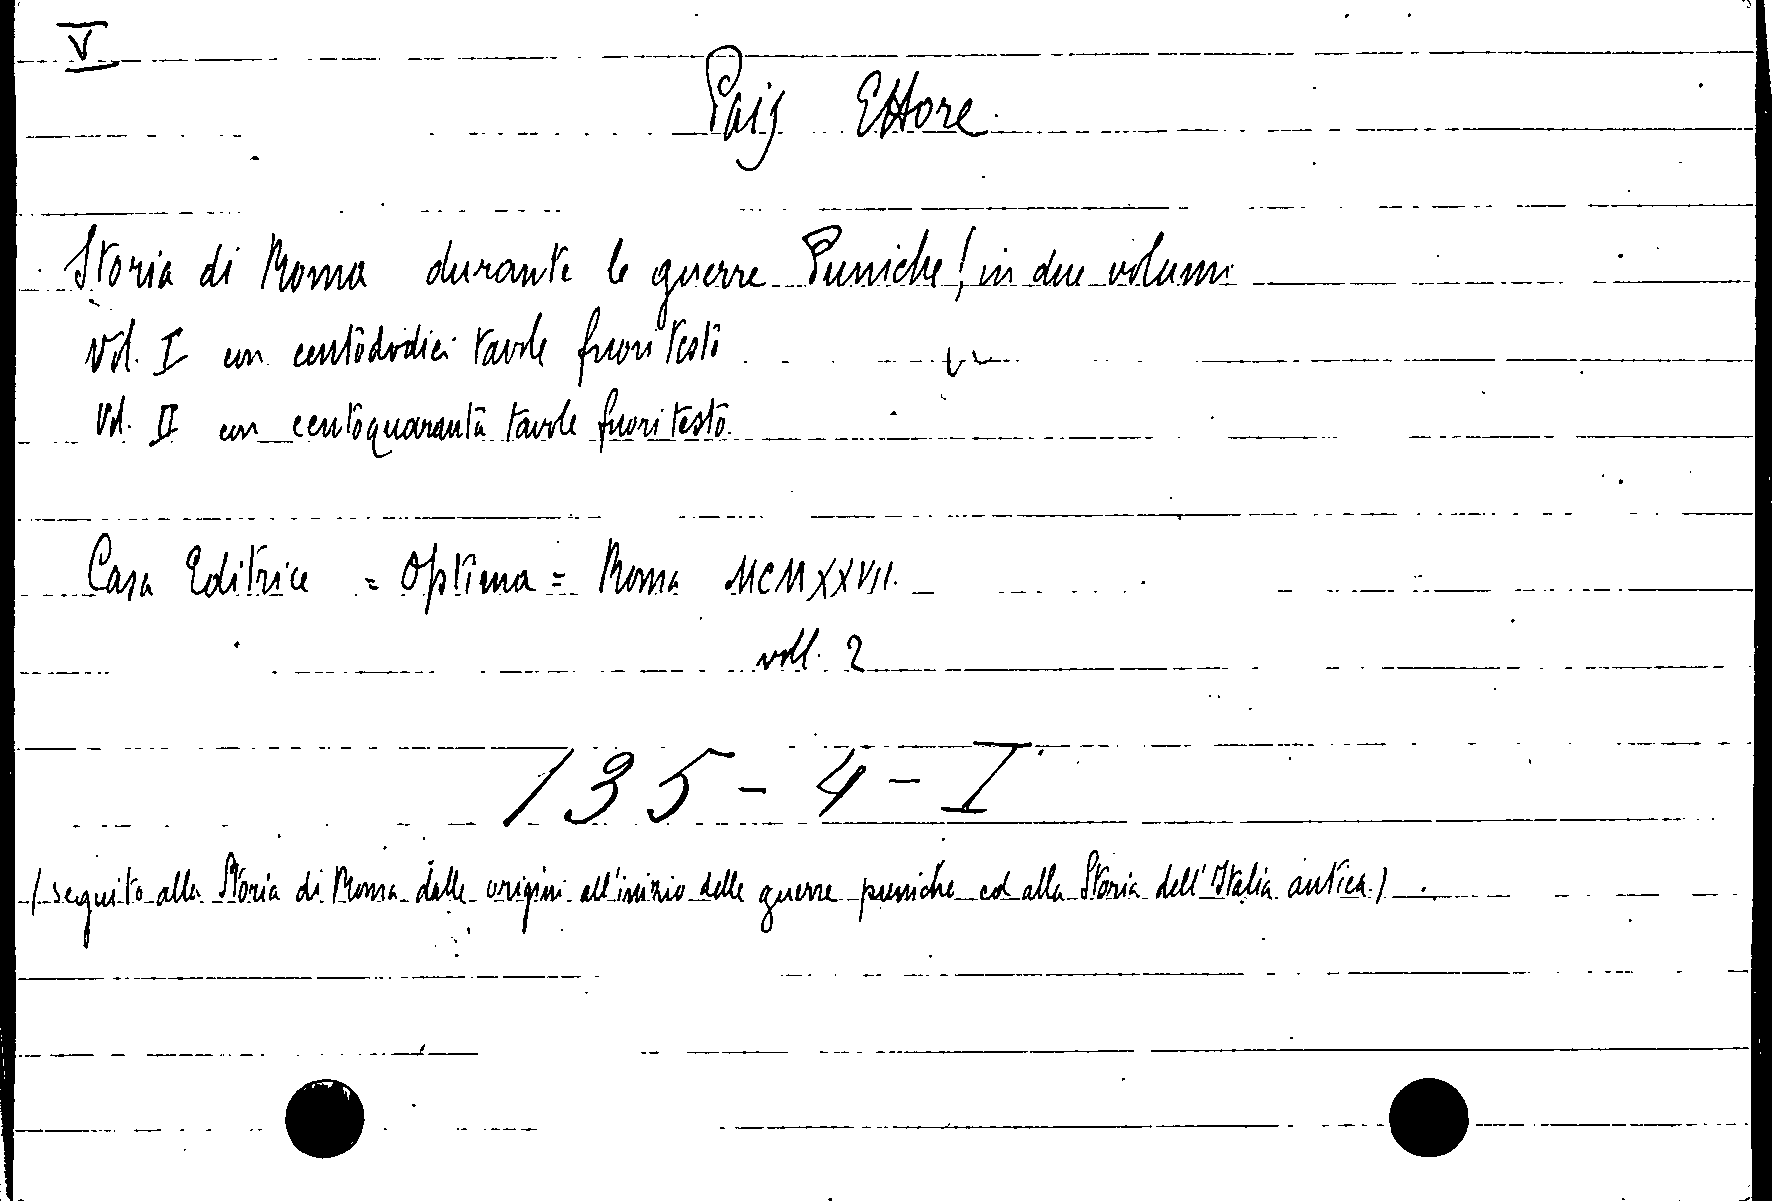 V
Pais Ettore.
Storia di Roma durante le guerre Puniche / in due volumi
Vol. I con centododici tavole fuori testo
Vol. II con centoquaranta tavole fuori testo.
Casa Editrice = Optima = Roma MCMXXVII.
voll. 2
135-4-I
(seguito alla Storia di Roma dalle origini all'inizio delle guerre puniche ed alla Storia dell'Italia antica.).